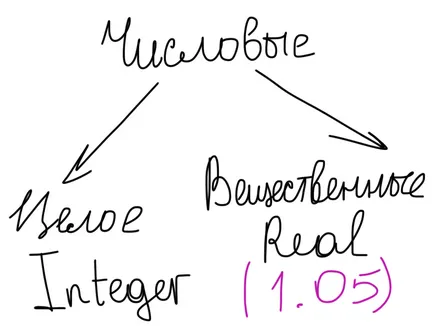 Числовые
Целое
Integer
Вещественные
Real
(1.05)